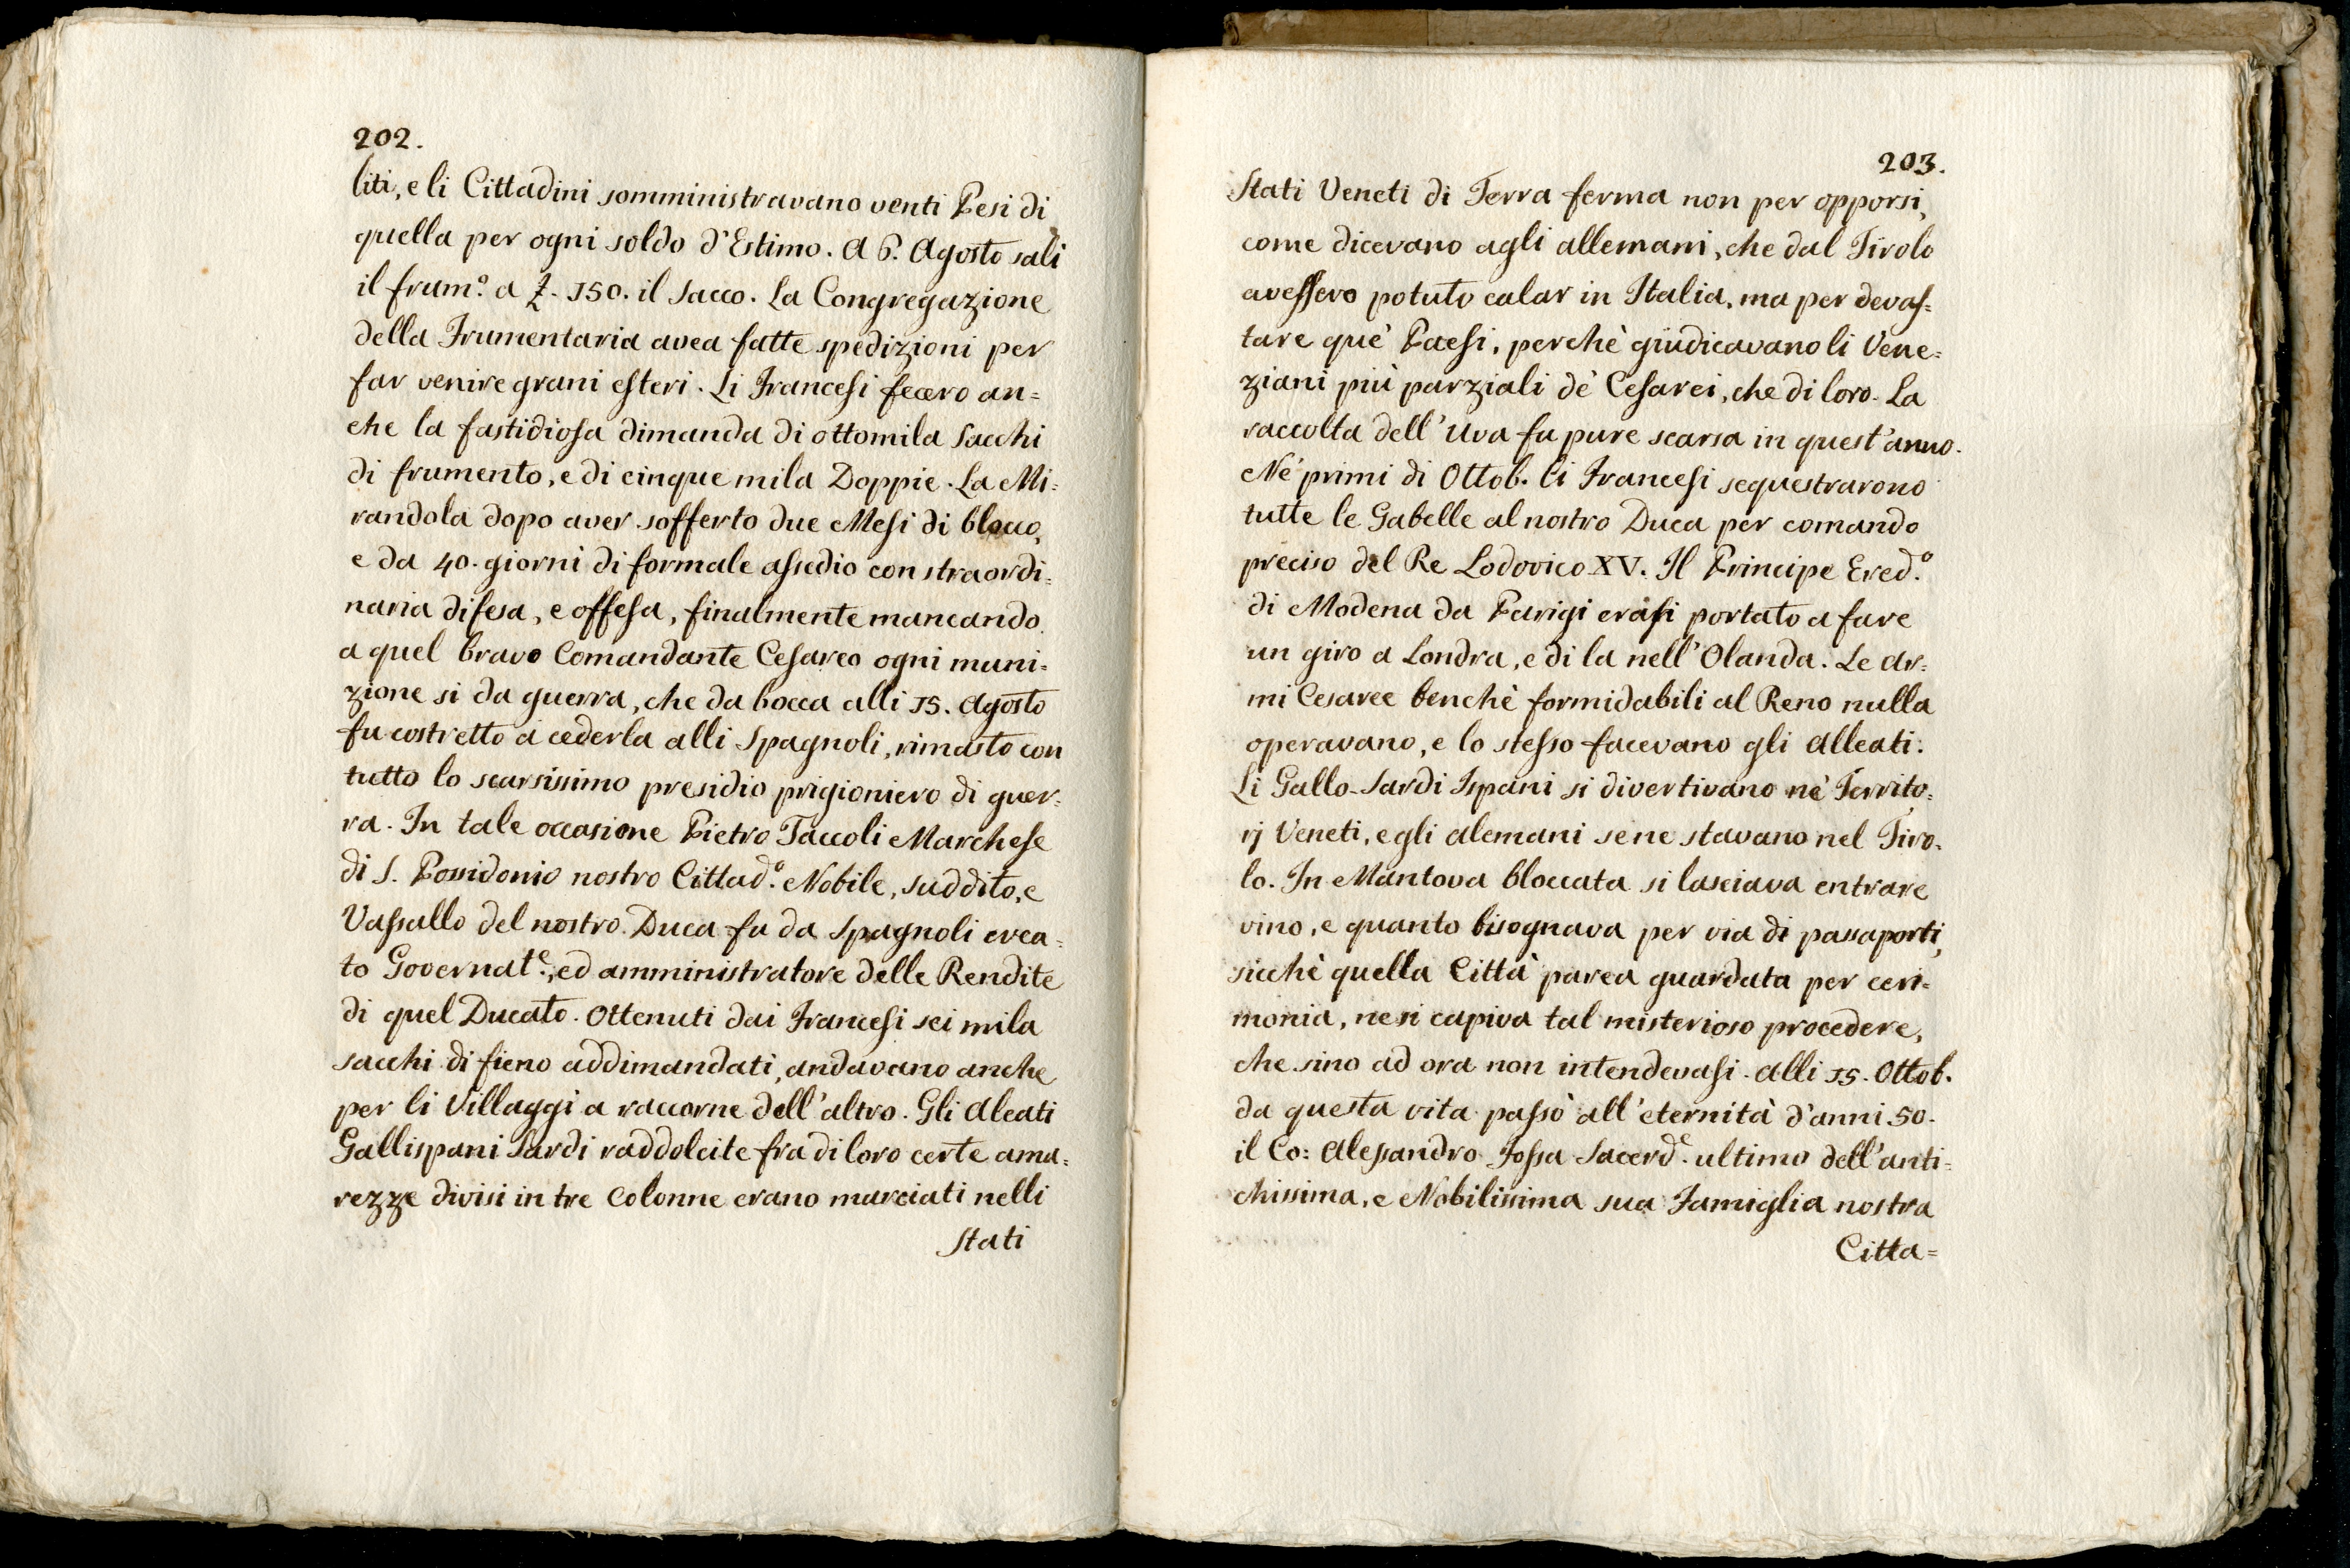 202.
liti, e li Cittadini somministravano venti Pesi di
quella per ogni soldo d'Estimo. A 6. Agosto salì
il frum.º a £. 150. il Sacco. La Congregazione
della Frumentaria avea fatte spedizioni per
far venire grani esteri. Li Francesi fecero an=
che la fastidiosa dimanda di ottomila Sacchi
di frumento, e di cinque mila Doppie. La Mi=
randola dopo aver sofferto due Mesi di blocco,
e da 40. giorni di formale assedio con straordi=
naria difesa, e offesa, finalmente mancando
a quel bravo Comandante Cesareo ogni muni=
zione si da guerra, che da bocca alli 15. Agosto
fu costretto a cederla alli Spagnoli, rimasto con
tutto lo scarsissimo presidio prigioniero di guer=
ra. In tale occasione Pietro Taccoli Marchese
di S. Possidonio nostro Cittad.º Nobile, suddito, e
Vassallo del nostro Duca fu da Spagnoli crea=
to Governat.e, ed amministratore delle Rendite
di quel Ducato. Ottenuti dai Francesi sei mila
sacchi di fieno addimandati, andavano anche
per li Villaggi a raccorne dell'altro. Gli Aleati
Gallispani Sardi raddolcite fra di loro certe ama=
rezze divisi in tre Colonne erano marciati nelli
Stati
203.
Stati Veneti di Terra ferma non per opporsi,
come dicevano agli allemani, che dal Tirolo
avessero potuto calar in Italia, ma per devas=
tare que' Paesi, perchè giudicavano li Vene=
ziani più parziali de' Cesarei, che di loro. La
raccolta dell'Uva fu pure scarsa in quest'anno.
Ne' primi di Ottob. li Francesi sequestrarono
tutte le Gabelle al nostro Duca per comando
preciso del Re Lodovico XV. Il Principe Ered.º
di Modena da Parigi erasi portato a fare
un giro a Londra, e di la nell'Olanda. Le Ar=
mi Cesaree benchè formidabili al Reno nulla
operavano, e lo stesso facevano gli Alleati.
Li Gallo-Sardi Ispani si divertivano ne' Territo=
rj Veneti, e gli alemani se ne stavano nel Tiro=
lo. In Mantova bloccata si lasciava entrare
vino, e quanto bisognava per via di passaporti,
sicchè quella Città parea guardata per ceri=
monia, ne si capiva tal misterioso procedere,
che sino ad ora non intendevasi. Alli 15. Ottob.
da questa vita passò all'eternità d'anni 50.
il Co: Alessandro Fossa Sacerd.e ultimo dell'anti=
chissima, e Nobilissima sua Famiglia nostra
Citta=